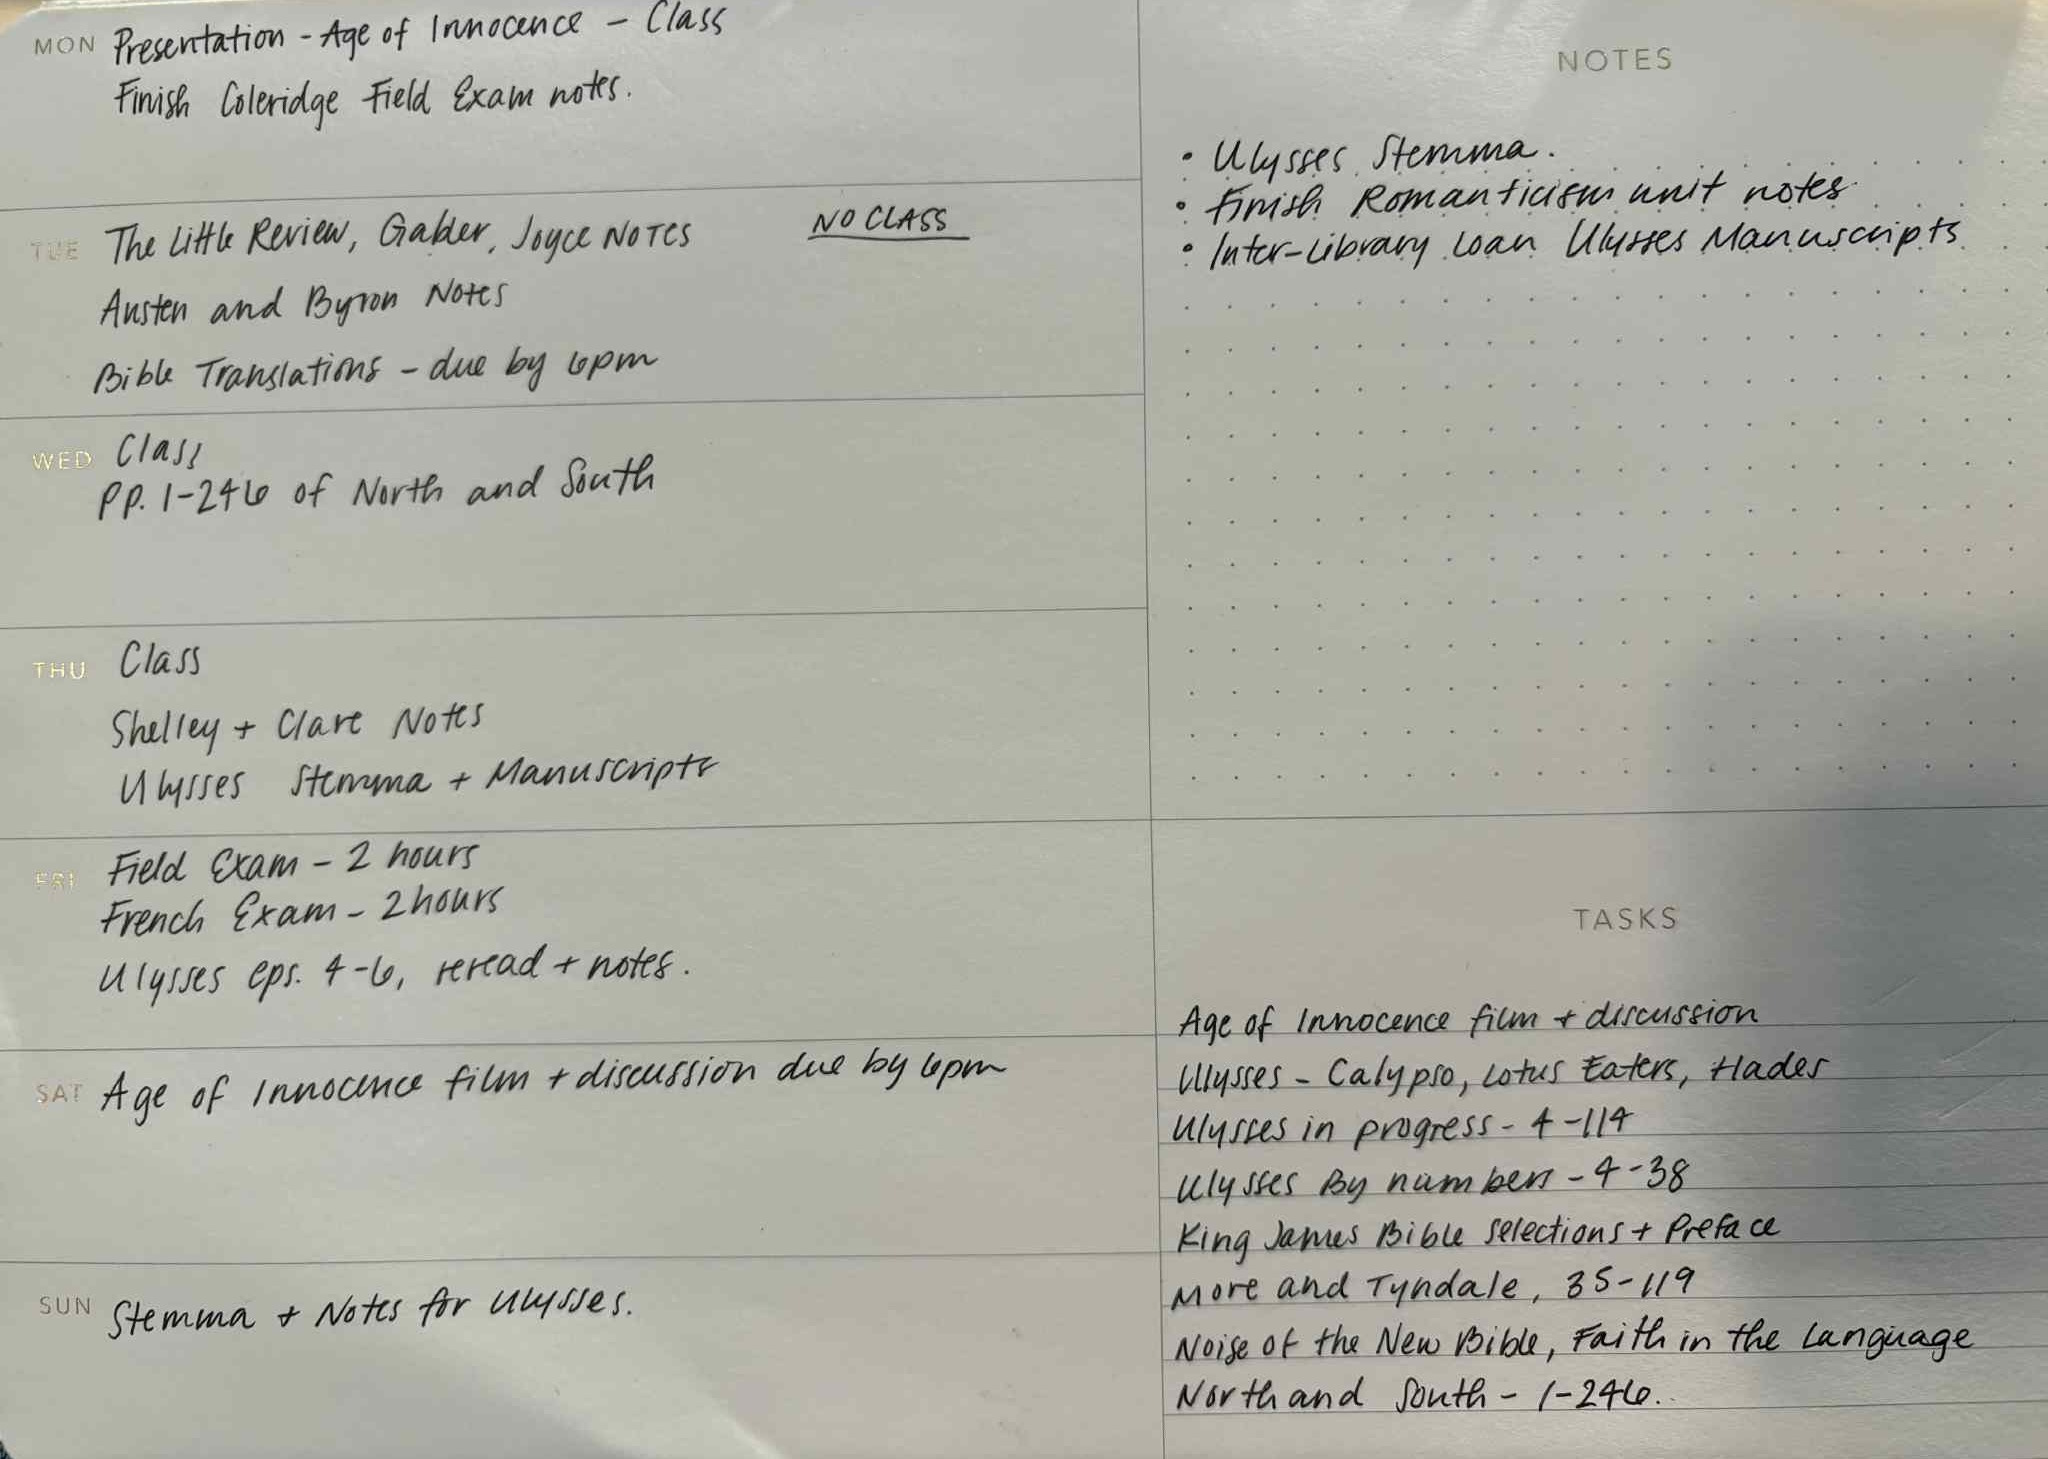 MON Presentation - Age of Innocence - Class
Finish Coleridge Field Exam notes.
TUE The Little Review, Gabler, Joyce Notes NO CLASS
Austen and Byron Notes
Bible Translations - due by 6pm
WED Class
pp. 1-246 of North and South
THU Class
Shelley + Clare Notes
Ulysses Stemma + Manuscripts
FRI Field Exam - 2 hours
French Exam - 2 hours
Ulysses eps. 4-6, reread + notes.
SAT Age of Innocence film + discussion due by 6pm
SUN Stemma + Notes for Ulysses.
NOTES
• Ulysses Stemma.
• Finish Romanticism unit notes
• Inter-Library Loan Ulysses Manuscripts
TASKS
Age of Innocence film + discussion
Ulysses - Calypso, Lotus Eaters, Hades
Ulysses in progress - 4-114
Ulysses By numbers - 4-38
King James Bible selections + Preface
More and Tyndale, 35-119
Noise of the New Bible, Faith in the Language
North and South - 1-246.